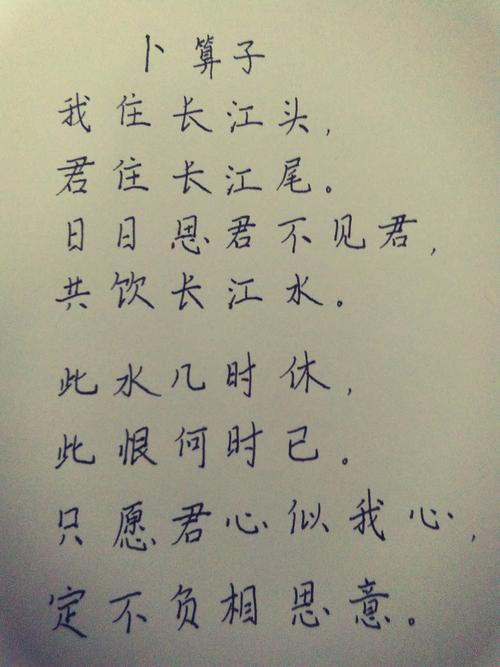 卜算子
我住长江头，
君住长江尾。
日日思君不见君，
共饮长江水。
此水几时休，
此恨何时已。
只愿君心似我心，
定不负相思意。